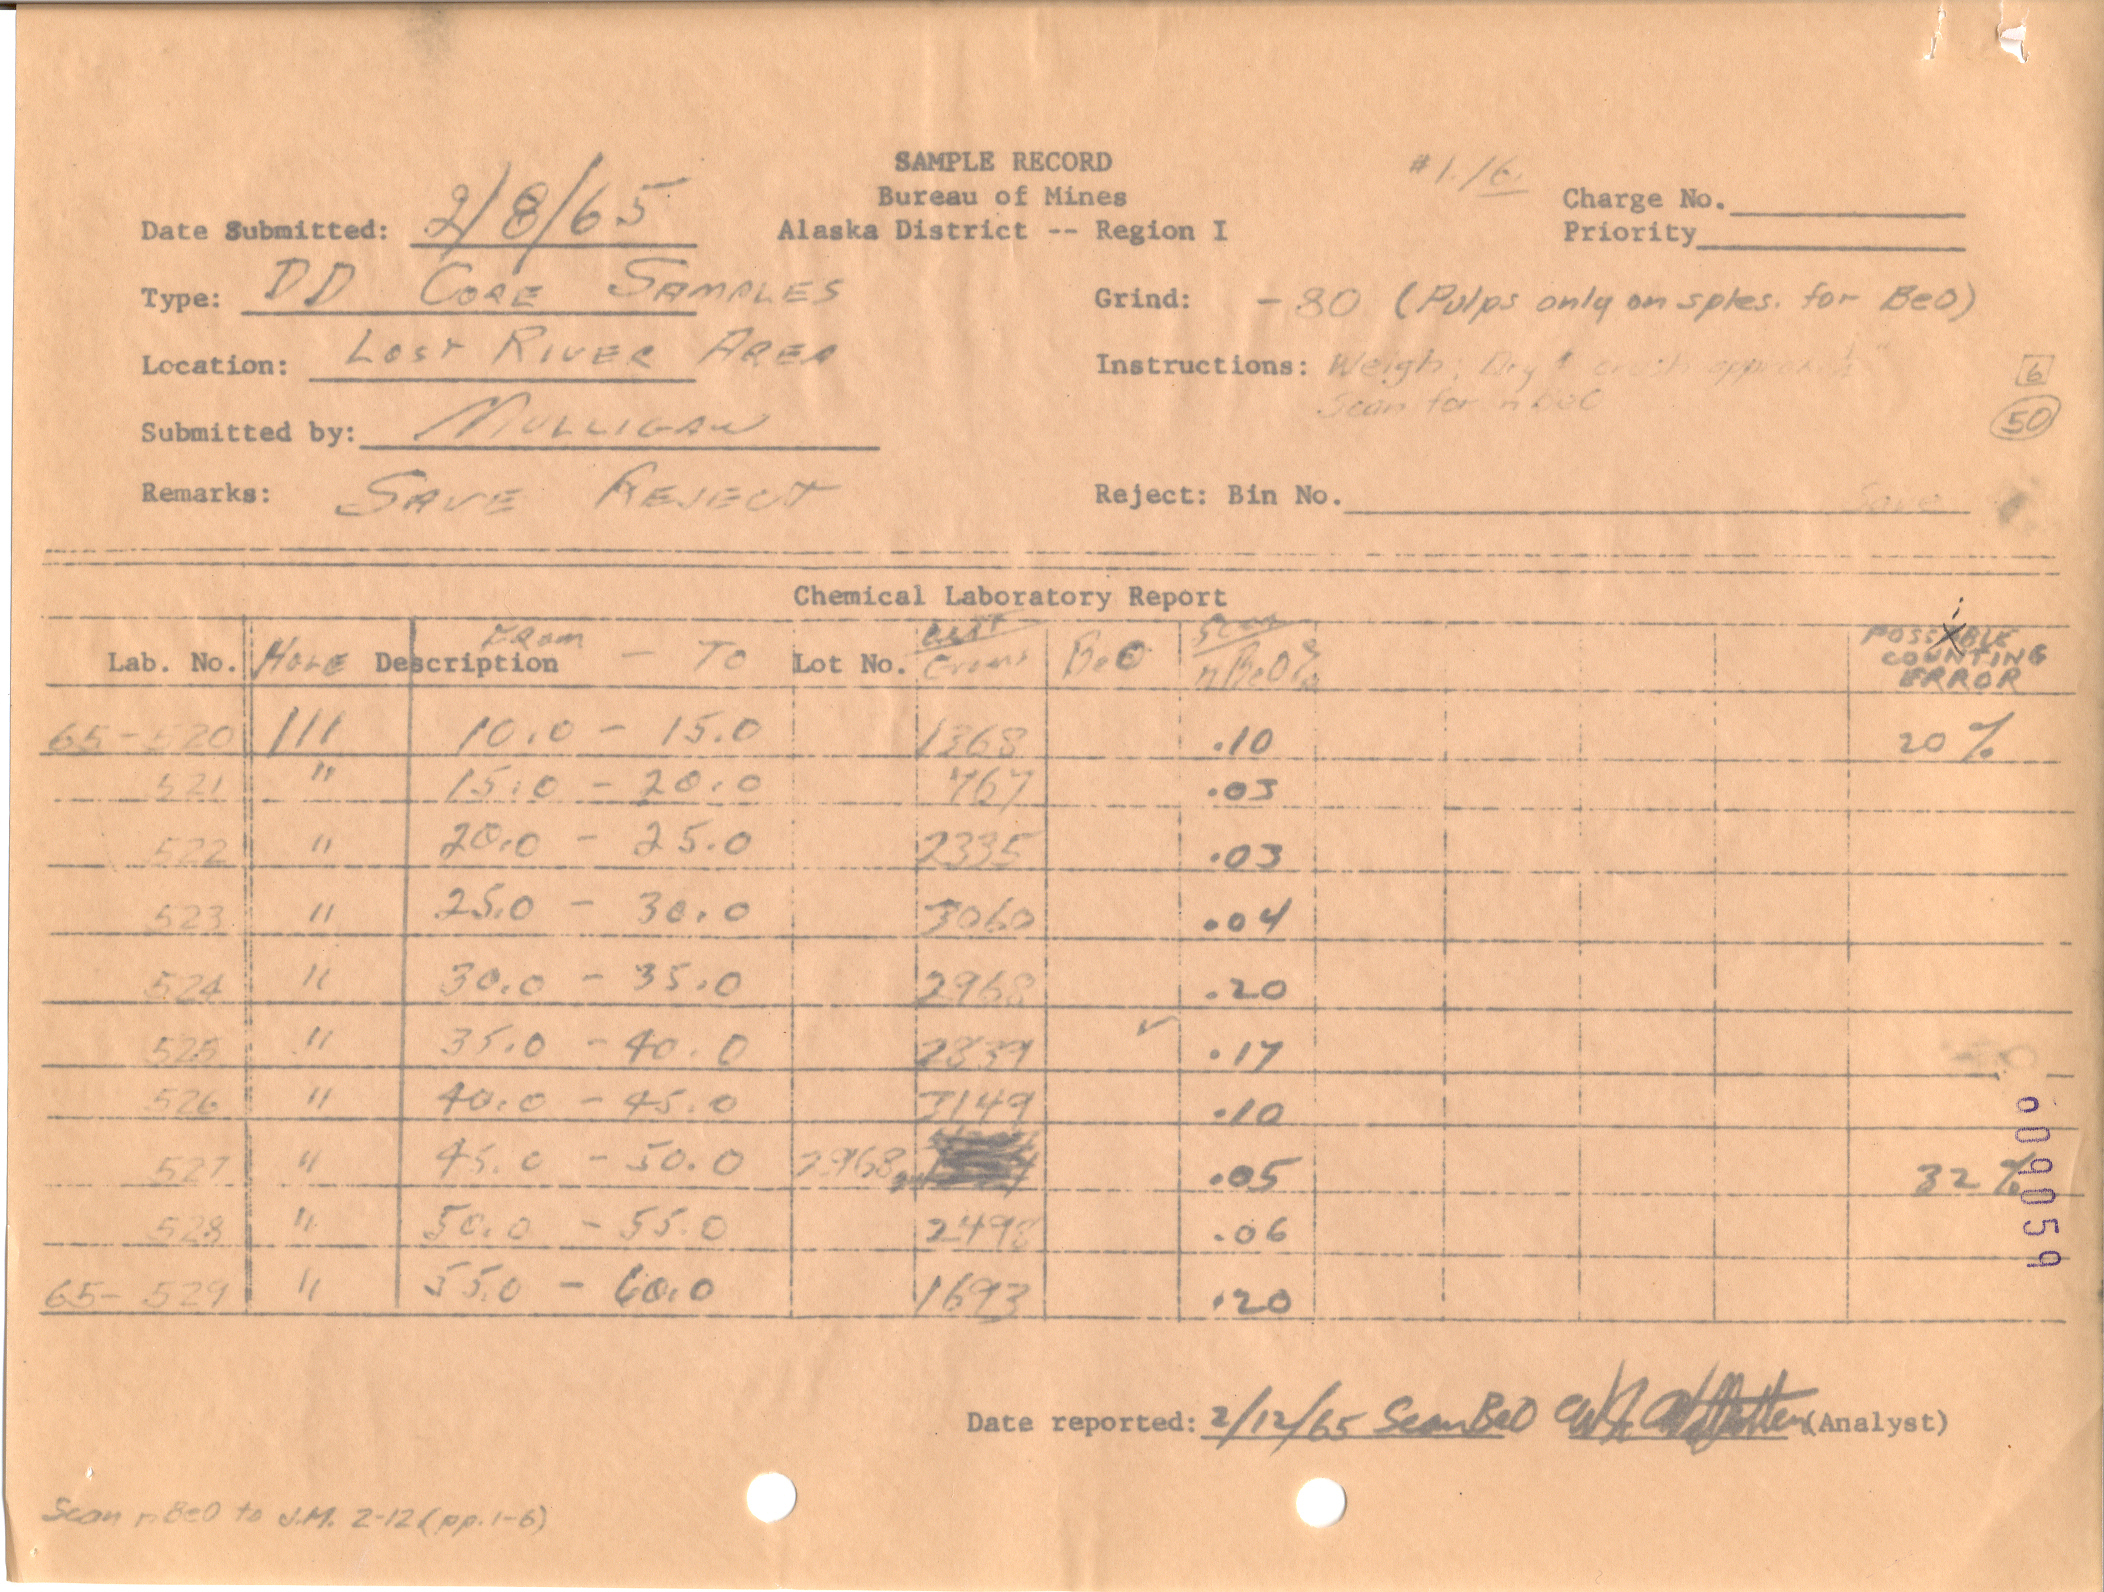 SAMPLE RECORD
#1./6
Bureau of Mines
Charge No.
Date Submitted: 2/8/65
Alaska District -- Region I
Priority
Type: DD CORE SAMPLES
Grind: -80 (Pulps only on sples. for BeO)
Location: LOST RIVER AREA
Instructions: Weigh, Dry & crush
Scan for nBeO
6
50
Submitted by: MULLIGAN
Remarks: SAVE REJECT
Reject: Bin No. Save
Chemical Laboratory Report
Lab. No. HOLE Description FROM - TO Lot No. Grams BeO Scan nBeO% POSSIBLE COUNTING ERROR
65-520 111 10.0 - 15.0 1368 .10 20%
521 " 15.0 - 20.0 767 .03
522 " 20.0 - 25.0 2335 .03
523 " 25.0 - 30.0 3060 .04
524 " 30.0 - 35.0 2968 .20
525 " 35.0 - 40.0 2839 ✓ .17
526 " 40.0 - 45.0 3149 .10
527 " 45.0 - 50.0 2968 .05 32%
528 " 50.0 - 55.0 2498 .06
65-529 " 55.0 - 60.0 1693 .20
009059
Date reported: 2/12/65 Scan BeO (Analyst)
Scan nBeO to J.M. 2-12 (pp. 1-6)